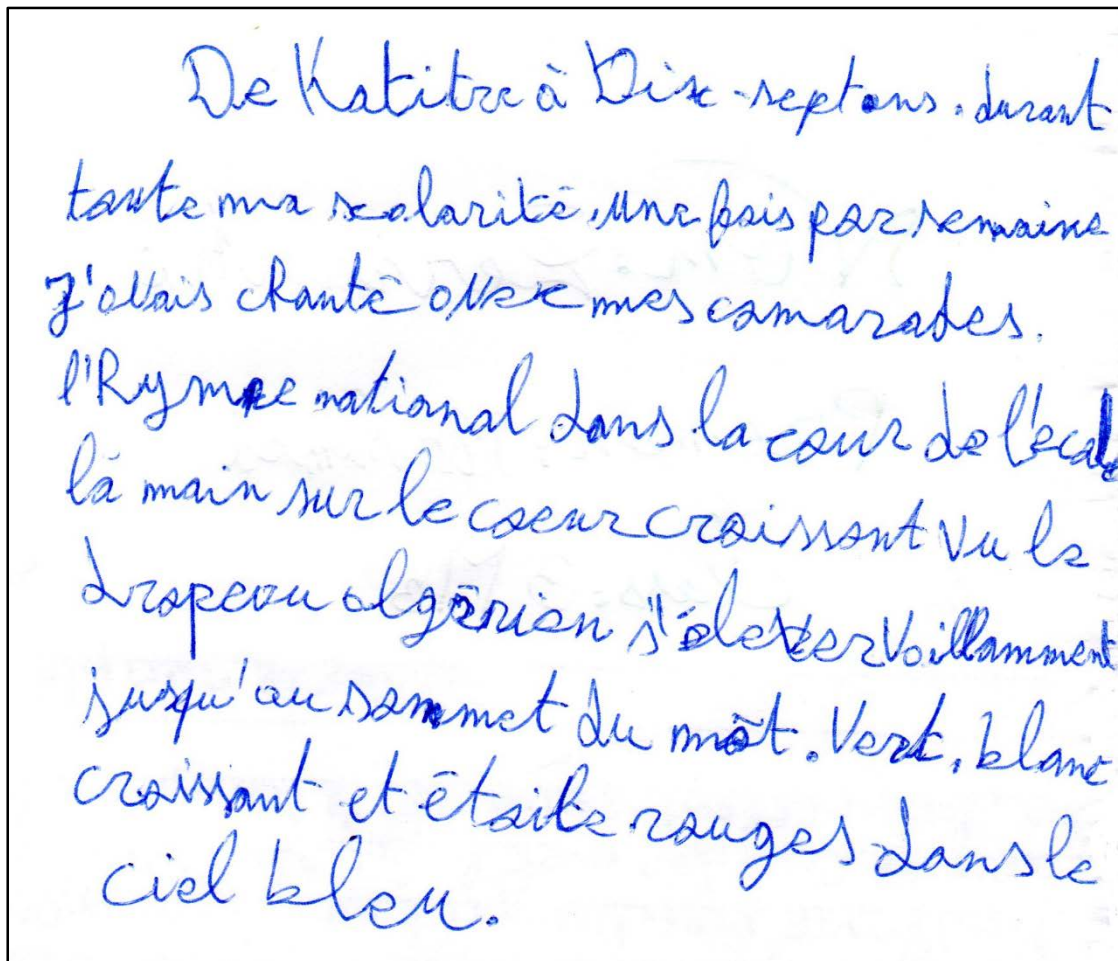 De Katitre à Dix-sept ans. durant
toute ma scolarité, une fois par semaine
J'avais chanté avec mes camarades.
l'Hymne national dans la cour de l'école
là main sur le coeur croissant vu le
drapeau algérien s'élever vaillamment
jusqu'au sommet du mât. Vert, blanc
croissant et étoile rouges dans le
ciel bleu.